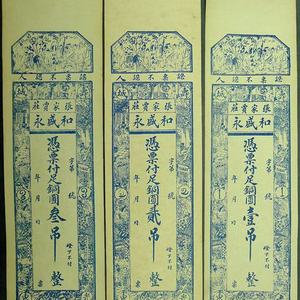 認票不認人
張家賣莊
和盛永
字第 號
憑票付足銅圓壹吊整
年 月 日
燈下不付
認票不認人
張家賣莊
和盛永
字第 號
憑票付足銅圓貳吊整
年 月 日
燈下不付
認票不認人
張家賣莊
和盛永
字第 號
憑票付足銅圓叁吊整
年 月 日
燈下不付